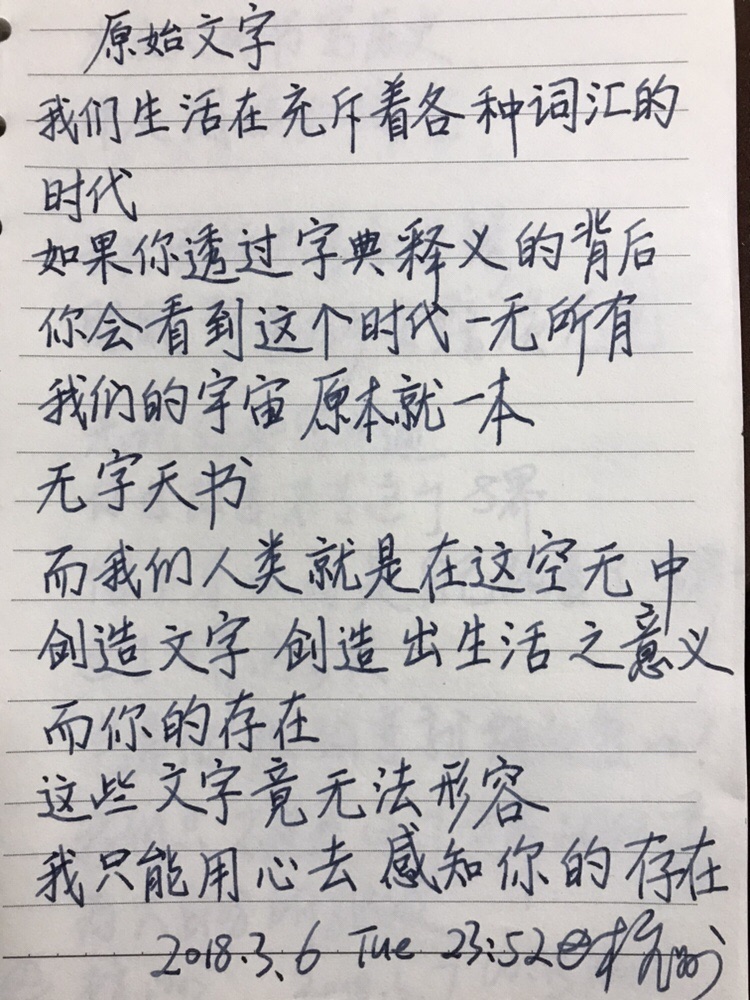 原始文字
我们生活在充斥着各种词汇的
时代
如果你透过字典释义的背后
你会看到这个时代一无所有
我们的宇宙 原本就一本
无字天书
而我们人类就是在这空无中
创造文字 创造出生活之意义
而你的存在
这些文字竟无法形容
我只能用心去感知你的存在
2018.3.6 Tue 23:52@杭州